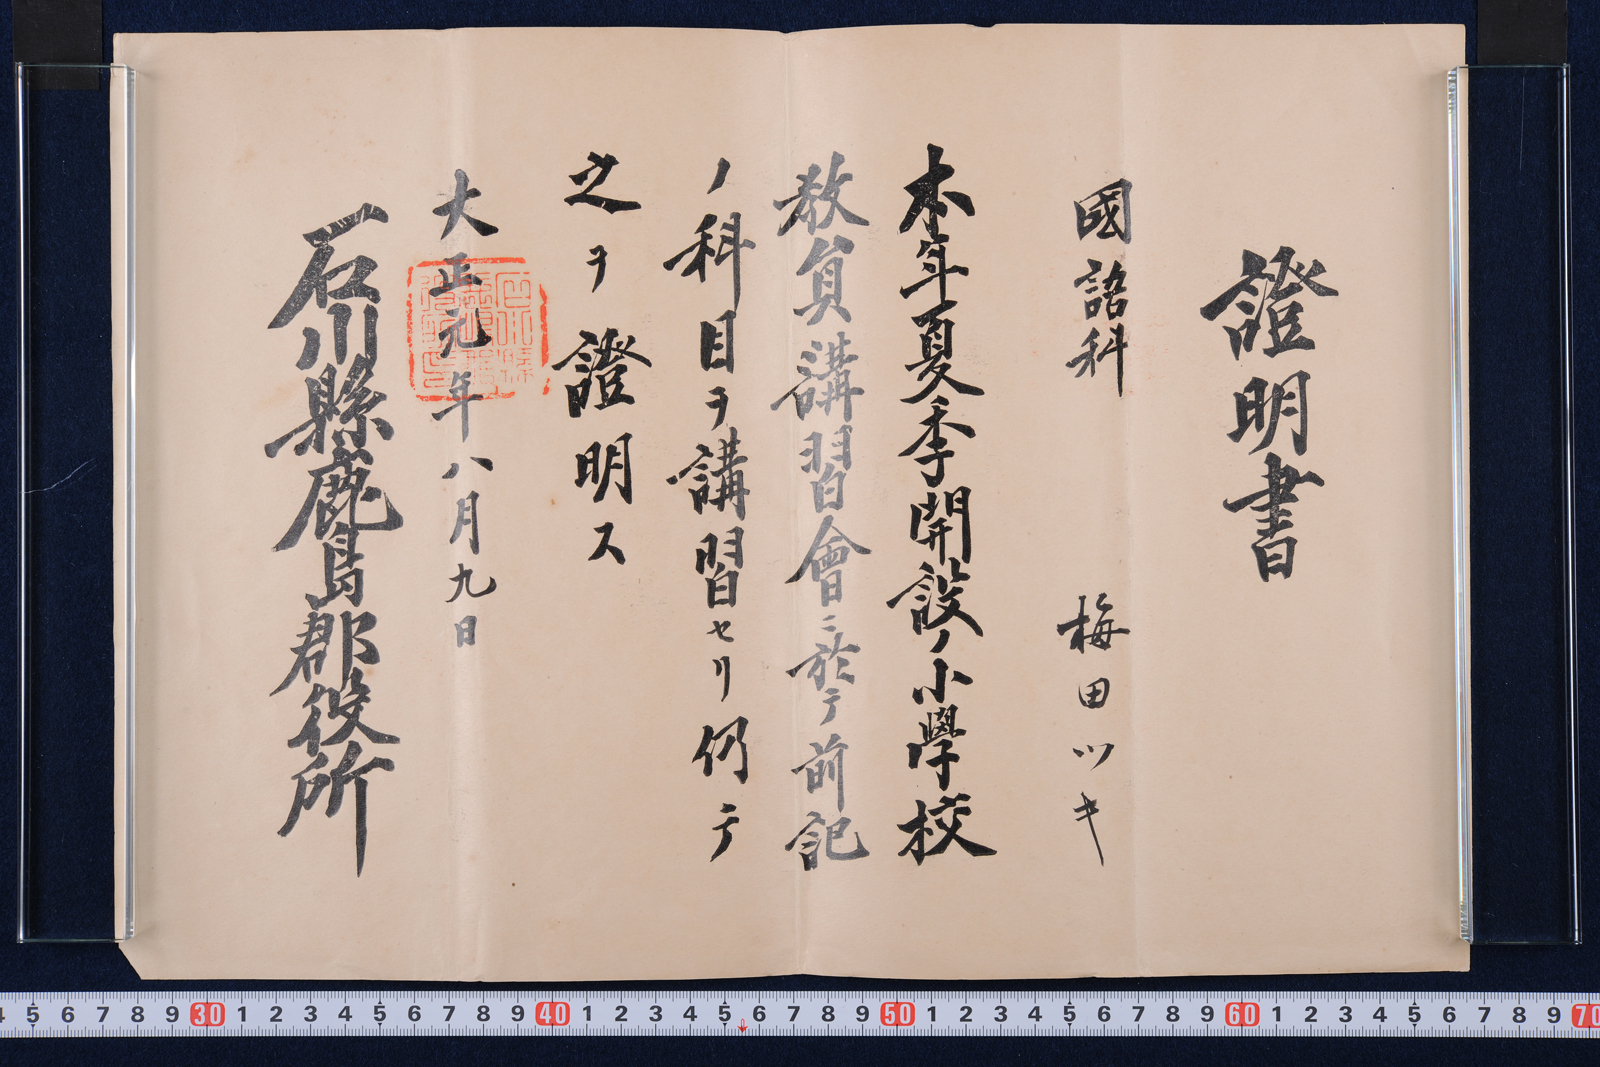 證明書
國語科 梅田ツキ
本年夏季開設ノ小學校
教員講習會ニ於テ前記
ノ科目ヲ講習セリ仍テ
之ヲ證明ス
大正元年八月九日
石川縣鹿島郡役所
4 5 6 7 8 9 30 1 2 3 4 5 6 7 8 9 40 1 2 3 4 5 6 7 8 9 50 1 2 3 4 5 6 7 8 9 60 1 2 3 4 5 6 7 8 9 70